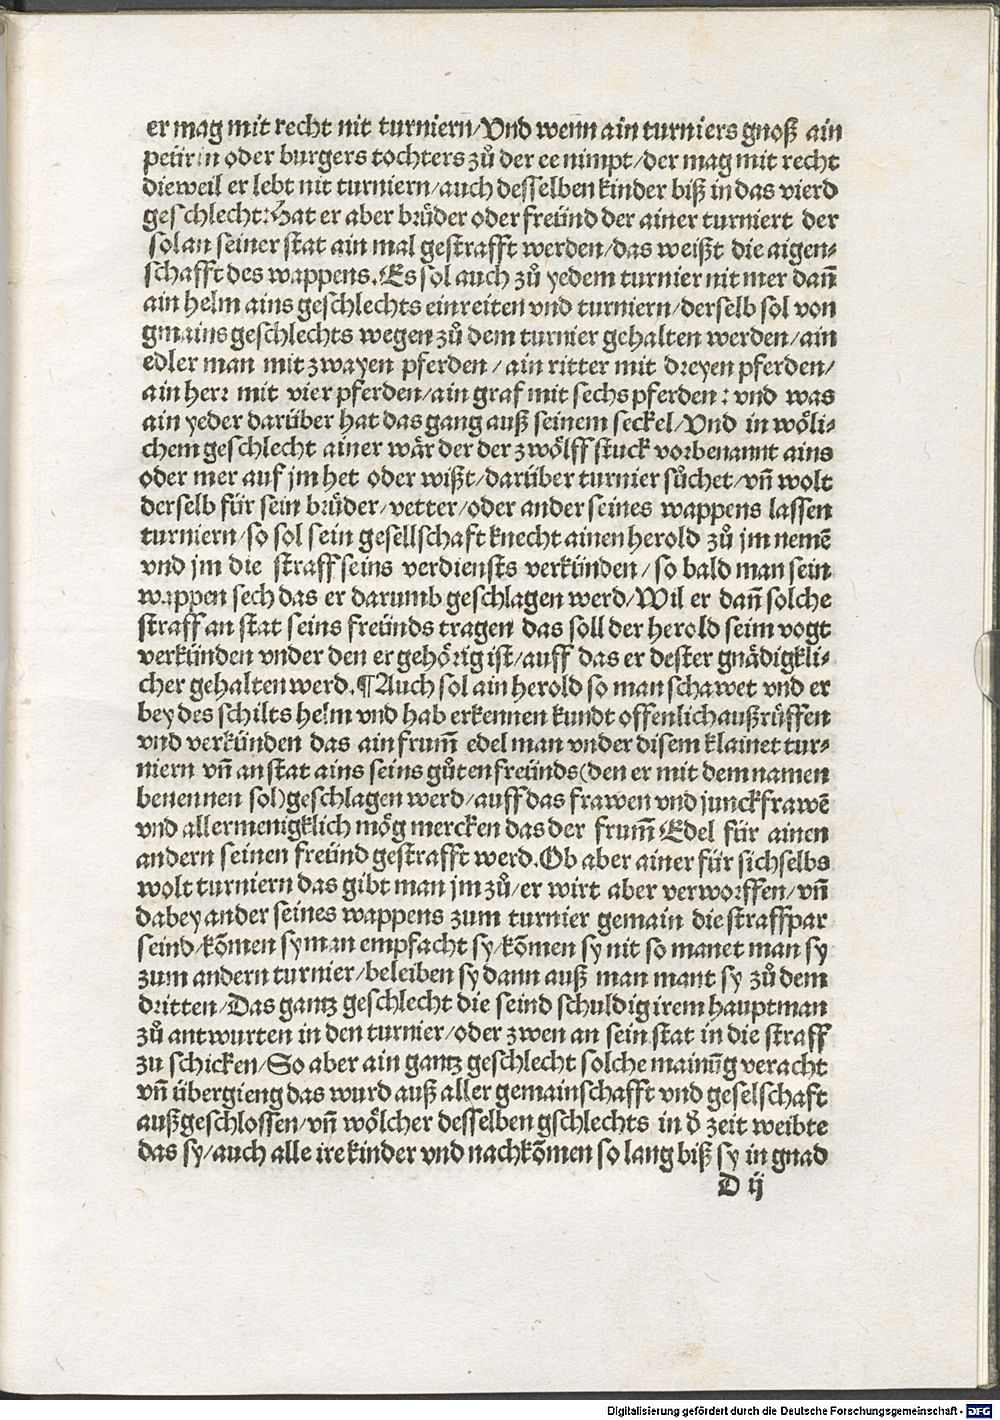 er mag mit recht nit turniern/Vnd wenn ain turniers gnoß ain
peürin oder burgers tochters zů der ee nimpt/der mag mit recht
dieweil er lebt nit turniern/auch desselben kinder biß in das vierd
geschlecht: Hat er aber brüder oder freünd der ainer turniert der
sol an seiner stat ain mal gestrafft werden/das weißt die aigen⸗
schafft des wappens. Es sol auch zů yedem turnier nit mer dañ
ain helm ains geschlechts einreiten vnd turniern/derselb sol von
gmains geschlechts wegen zů dem turnier gehalten werden/ain
edler man mit zwayen pferden/ain ritter mit dreyen pferden/
ain herr mit vier pferden/ain graf mit sechs pferden: vnd was
ain yeder darüber hat das gang auß seinem seckel/Vnd in wöli⸗
chem geschlecht ainer wär der der zwölff stuck vorbenannt ains
oder mer auf jm het oder wißt/darüber turnier sůchet/vñ wolt
derselb für sein brüder/vetter/oder ander seines wappens lassen
turniern/so sol sein gesellschaft knecht ainen herold zů jm nemē
vnd jm die straff seins verdiensts verkünden/so bald man sein
wappen sech das er darumb geschlagen werd/Wil er dañ solche
straff an stat seins freünds tragen das soll der herold seim vogt
verkünden vnder den er gehörig ist/auff das er dester gnädigkli⸗
cher gehalten werd. ¶ Auch sol ain herold so man schawet vnd er
bey des schilts helm vnd hab erkennen kundt offenlich außrüffen
vnd verkünden das ain frum̄ edel man vnder disem klainet tur⸗
niern vñ an stat ains seins gůten freünds(den er mit dem namen
benennen sol)geschlagen werd/auff das frawen vnd junckfrawē
vnd allermenigklich mög mercken das der frum̄ Edel für ainen
andern seinen freünd gestrafft werd. Ob aber ainer für sich selbs
wolt turniern das gibt man jm zů/er wirt aber verworffen/vñ
dabey ander seines wappens zum turnier gemain die straffpar
seind/kōmen sy man empfacht sy/kōmen sy nit so manet man sy
zum andern turnier/beleiben sy dann auß man mant sy zů dem
dritten/Das gantz geschlecht die seind schuldig irem hauptman
zů antwurten in den turnier/oder zwen an sein stat in die straff
zu schicken/So aber ain gantz geschlecht solche mainūg veracht
vñ übergieng das wurd auß aller gemainschafft vnd geselschaft
außgeschlossen/vñ wölcher desselben gschlechts in d̄ zeit weibte
das sy/auch alle ire kinder vnd nachkōmen so lang biß sy in gnad
D ij
Digitalisierung gefördert durch die Deutsche Forschungsgemeinschaft - DFG